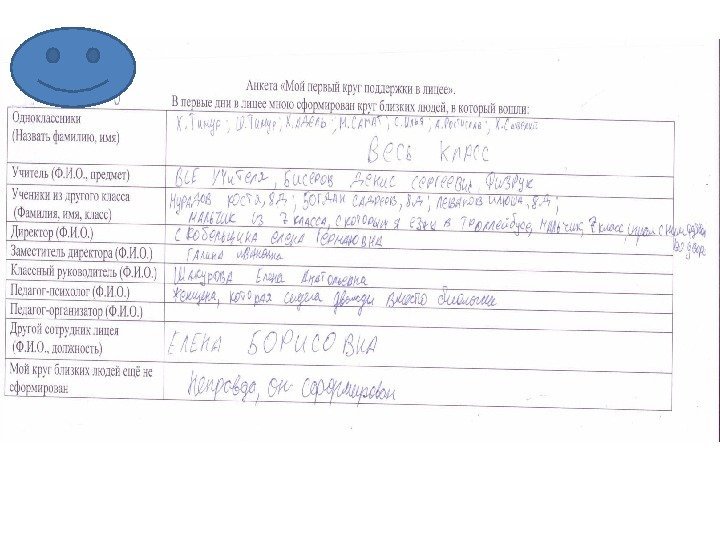 Анкета «Мой первый круг поддержки в лицее».
В первые дни в лицее мною сформирован круг близких людей, в который вошли:
Одноклассники
(Назвать фамилию, имя)
Х. Тимур; Х. Адель; М. САМАТ; С. Илья; А. Ростислав;
ВЕСЬ КЛАСС
Учитель (Ф.И.О., предмет)
ВСЕ УЧИТЕЛЯ, БИСЕРОВ ДЕНИС СЕРГЕЕВИЧ ФИЗРУК
Ученики из другого класса
(Фамилия, имя, класс)
МУРАДОВ КОСТЯ, 8Д; 8Д; ИЛЮША, 8Д;
МАЛЬЧИК ИЗ 7 КЛАССА, С КОТОРЫМ Я ЕЗЖУ В ТРОЛЛЕЙБУСЕ, МАЛЬЧИК, 7 класс
Директор (Ф.И.О.)
СКОБЕЛЬЦИНА ЕЛЕНА ГЕРМАНОВНА
Заместитель директора (Ф.И.О.)
ГАЛИНА ИВАНОВНА
Классный руководитель (Ф.И.О.)
ШАКУРОВА Елена Анатольевна
Педагог-психолог (Ф.И.О.)
Женщина, которая сидела дважды вместо биологии
Педагог-организатор (Ф.И.О.)
Другой сотрудник лицея
(Ф.И.О., должность)
ЕЛЕНА БОРИСОВНА
Мой круг близких людей ещё не
сформирован
Неправда, он сформирован